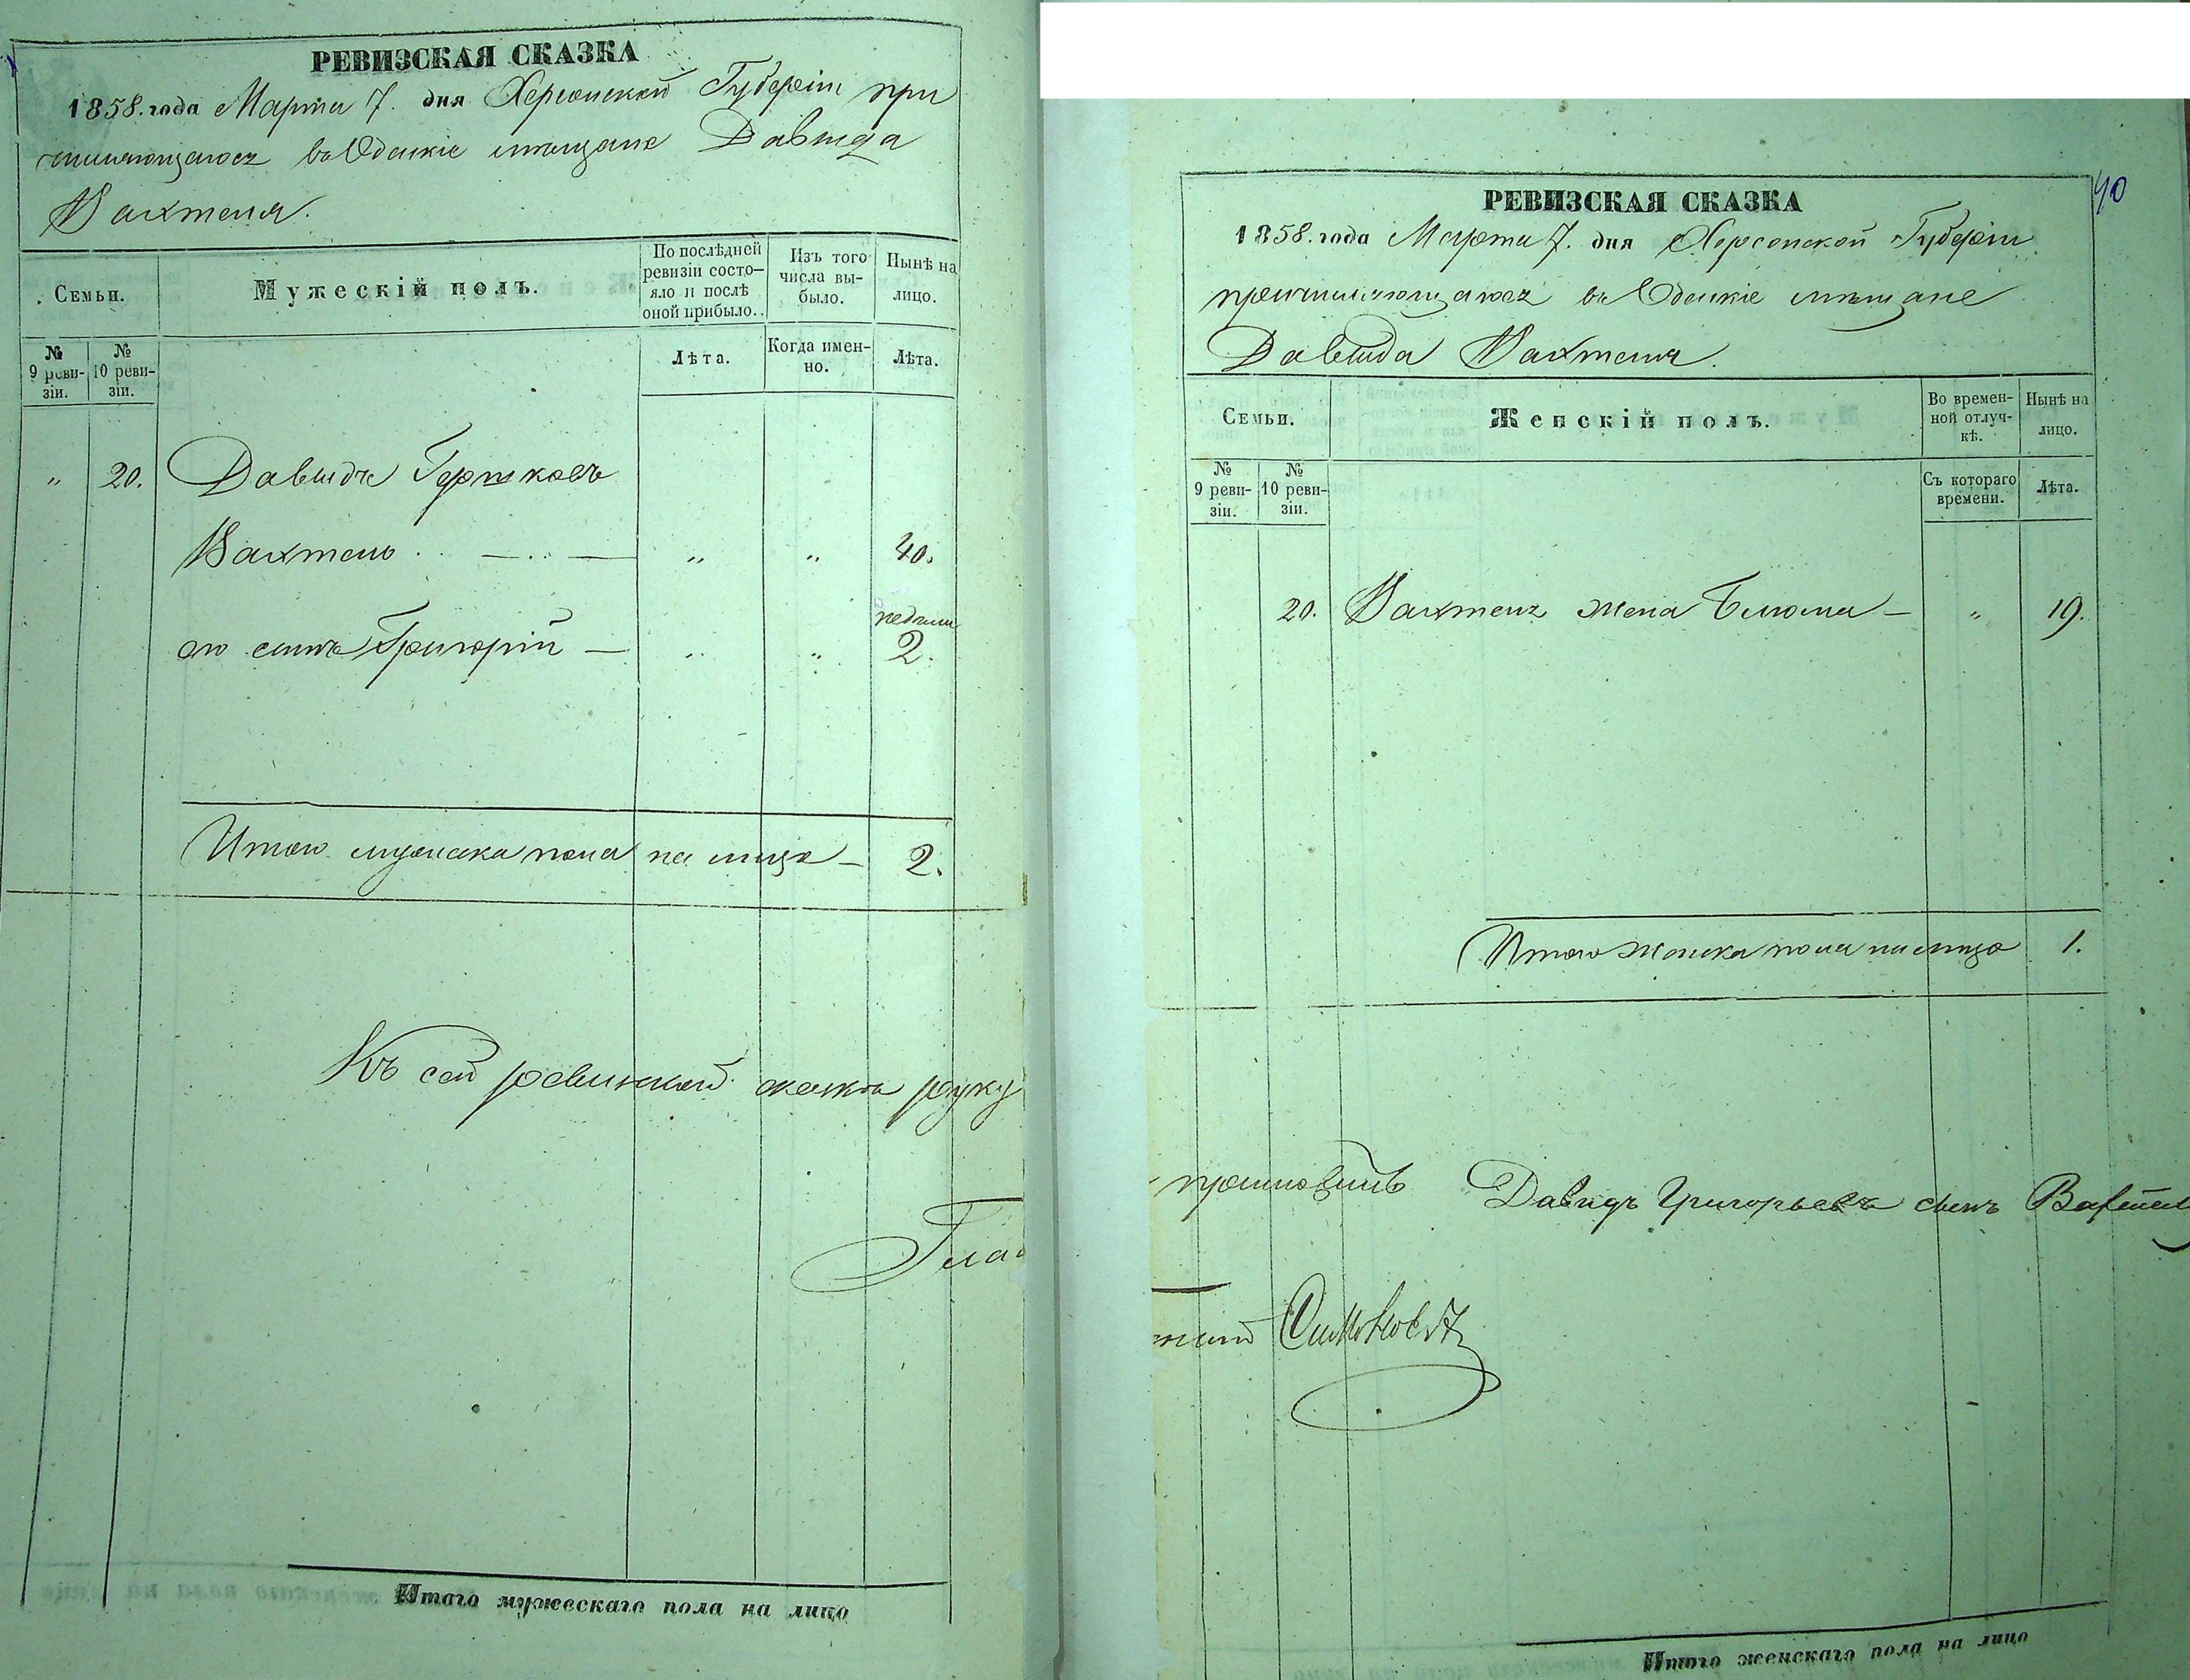 РЕВИЗСКАЯ СКАЗКА
1858. года Марта 7. дня Херсонской Губерніи при
числяющагося въ Одескіе мѣщане Давыда
Вахтеля.
Семьи.
Мужескій полъ.
По послѣдней ревизіи состояло и послѣ оной прибыло.
Изъ того числа выбыло.
Нынѣ на лицо.
№ 9 ревизіи.
№ 10 ревизіи.
Лѣта.
Когда именно.
Лѣта.
" 20. Давыдъ Гершковъ
Вахтель " " 40.
недѣли
его сынъ Григорій — " " 2.
Итого мужска пола на лицо — 2.
Къ сей ревизской сказкѣ руку
Глас
Итого мужескаго пола на лицо
40
РЕВИЗСКАЯ СКАЗКА
1858. года Марта 7. дня Херсонской Губерніи
причисляющагося въ Одескіе мѣщане
Давыда Вахтеля.
Семьи.
Женскій полъ.
Во временной отлучкѣ.
Нынѣ на лицо.
№ 9 ревизіи.
№ 10 ревизіи.
Съ котораго времени.
Лѣта.
20. Вахтеля жена Блюма — " 19.
Итого женска пола на лицо 1.
приложилъ Давидъ Григорьевъ сынъ Вахтель
ный Симоновъ
Итого женскаго пола на лицо